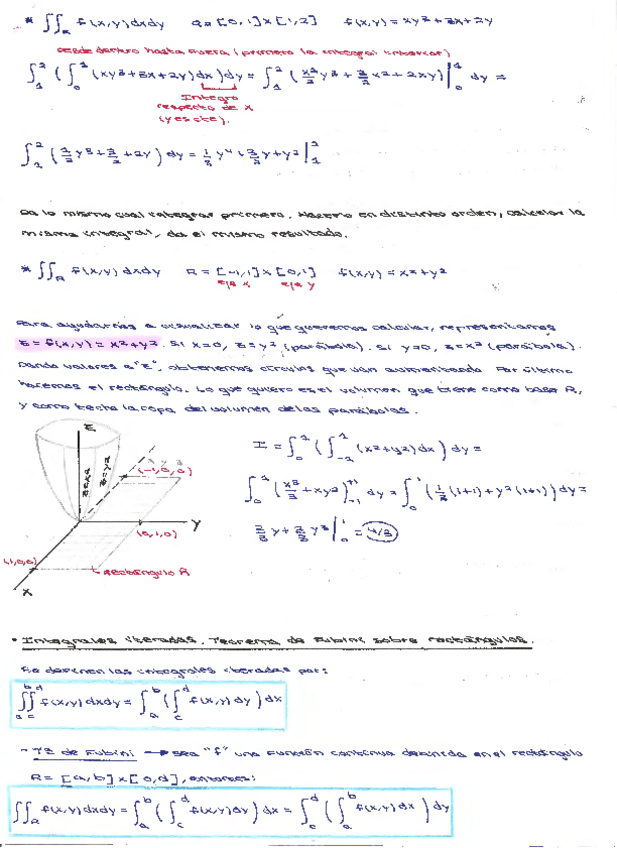 * ∬_R f(x,y)dxdy R=[0,1]x[1,2] f(x,y)=xy³+3x+2y
Desde dentro hasta fuera (primero la integral interior)
∫₁² (∫₀¹ (xy³+3x+2y)dx)dy = ∫₁² (x²/2 y³ + 3/2 x² + 2xy)|₀¹ dy =
Integro
respecto de x
(y es cte).
∫₁² (1/2 y³ + 3/2 + 2y) dy = 1/8 y⁴ + 3/2 y + y² |₁²
Da lo mismo cual integrar primero. Hacerlo en distinto orden, calcular la
misma integral, da el mismo resultado.
* ∬_R f(x,y) dxdy R=[-1,1]x[0,1] f(x,y)=x²+y²
eje x eje y
Para ayudarnos a visualizar lo que queremos calcular, representamos
z=f(x,y)=x²+y². Si x=0, z=y² (parábola). Si y=0, z=x² (parábola).
Dando valores a "z", obtenemos círculos que van aumentando. Por último
hacemos el rectángulo. Lo que quiero es el volumen que tiene como base R,
y como techo la copa del volumen de las parábolas.
z
z=x²
z=y²
(-1,0,0)
y
(0,1,0)
(1,0,0)
rectángulo R
x
I = ∫₀¹ (∫₋₁¹ (x²+y²)dx) dy =
∫₀¹ (x³/3 + xy²)₋₁⁺¹ dy = ∫₀¹ (1/3 (1+1) + y² (1+1)) dy =
2/3 y + 2/3 y³ |₀¹ = 4/3
• Integrales iteradas. Teorema de Fubini sobre rectángulos.
Se definen las integrales iteradas por:
∫ₐᵇ∫_c^d f(x,y)dxdy = ∫ₐᵇ (∫_c^d f(x,y)dy) dx
- Tª de Fubini → sea "f" una función continua definida en el rectángulo
R=[a,b]x[c,d], entonces:
∬_R f(x,y)dxdy = ∫ₐᵇ (∫_c^d f(x,y)dy) dx = ∫_c^d (∫ₐᵇ f(x,y)dx) dy